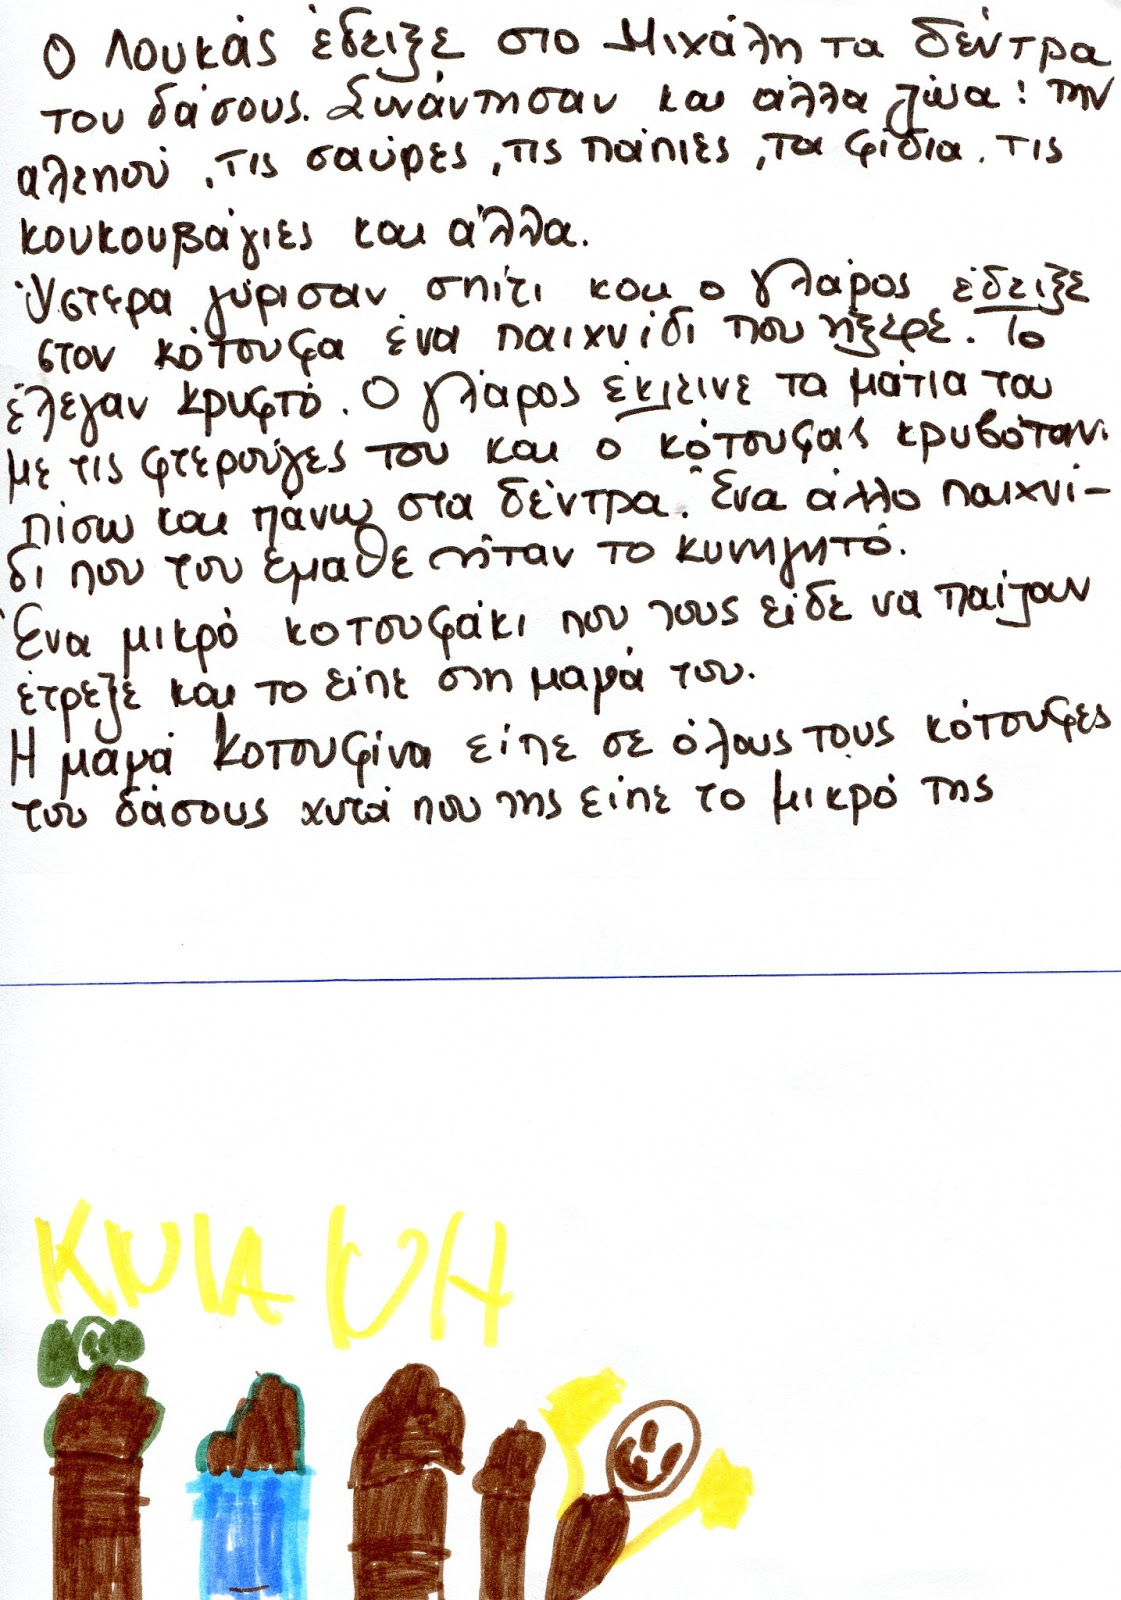 Ο Λουκάς έδειξε στο Μιχάλη τα δέντρα
του δάσους. Συνάντησαν και άλλα ζώα: την
αλεπού, τις σαύρες, τις πάπιες, τα φίδια. τις
κουκουβάγιες και άλλα.
Ύστερα γύρισαν σπίτι και ο γλάρος έδειξε
στον κότσυφα ένα παιχνίδι που ήξερε. Το
έλεγαν κρυφτό. Ο γλάρος έκλεινε τα μάτια του
με τις φτερούγες του και ο κότσυφας κρυβόταν
πίσω και πάνω στα δέντρα. Ένα άλλο παιχνί-
δι που του έμαθε ήταν το κυνηγητό.
Ένα μικρό κοτσυφάκι που τους είδε να παίζουν
έτρεξε και το είπε στη μαμά του.
Η μαμά κοτσυφίνα είπε σε όλους τους κότσυφες
του δάσους αυτά που της είπε το μικρό της